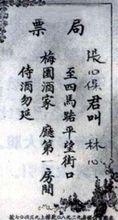 局票
張心 君叫 林心
至四馬路平望街口
梅園酒家 廳第一房間
侍酒勿延